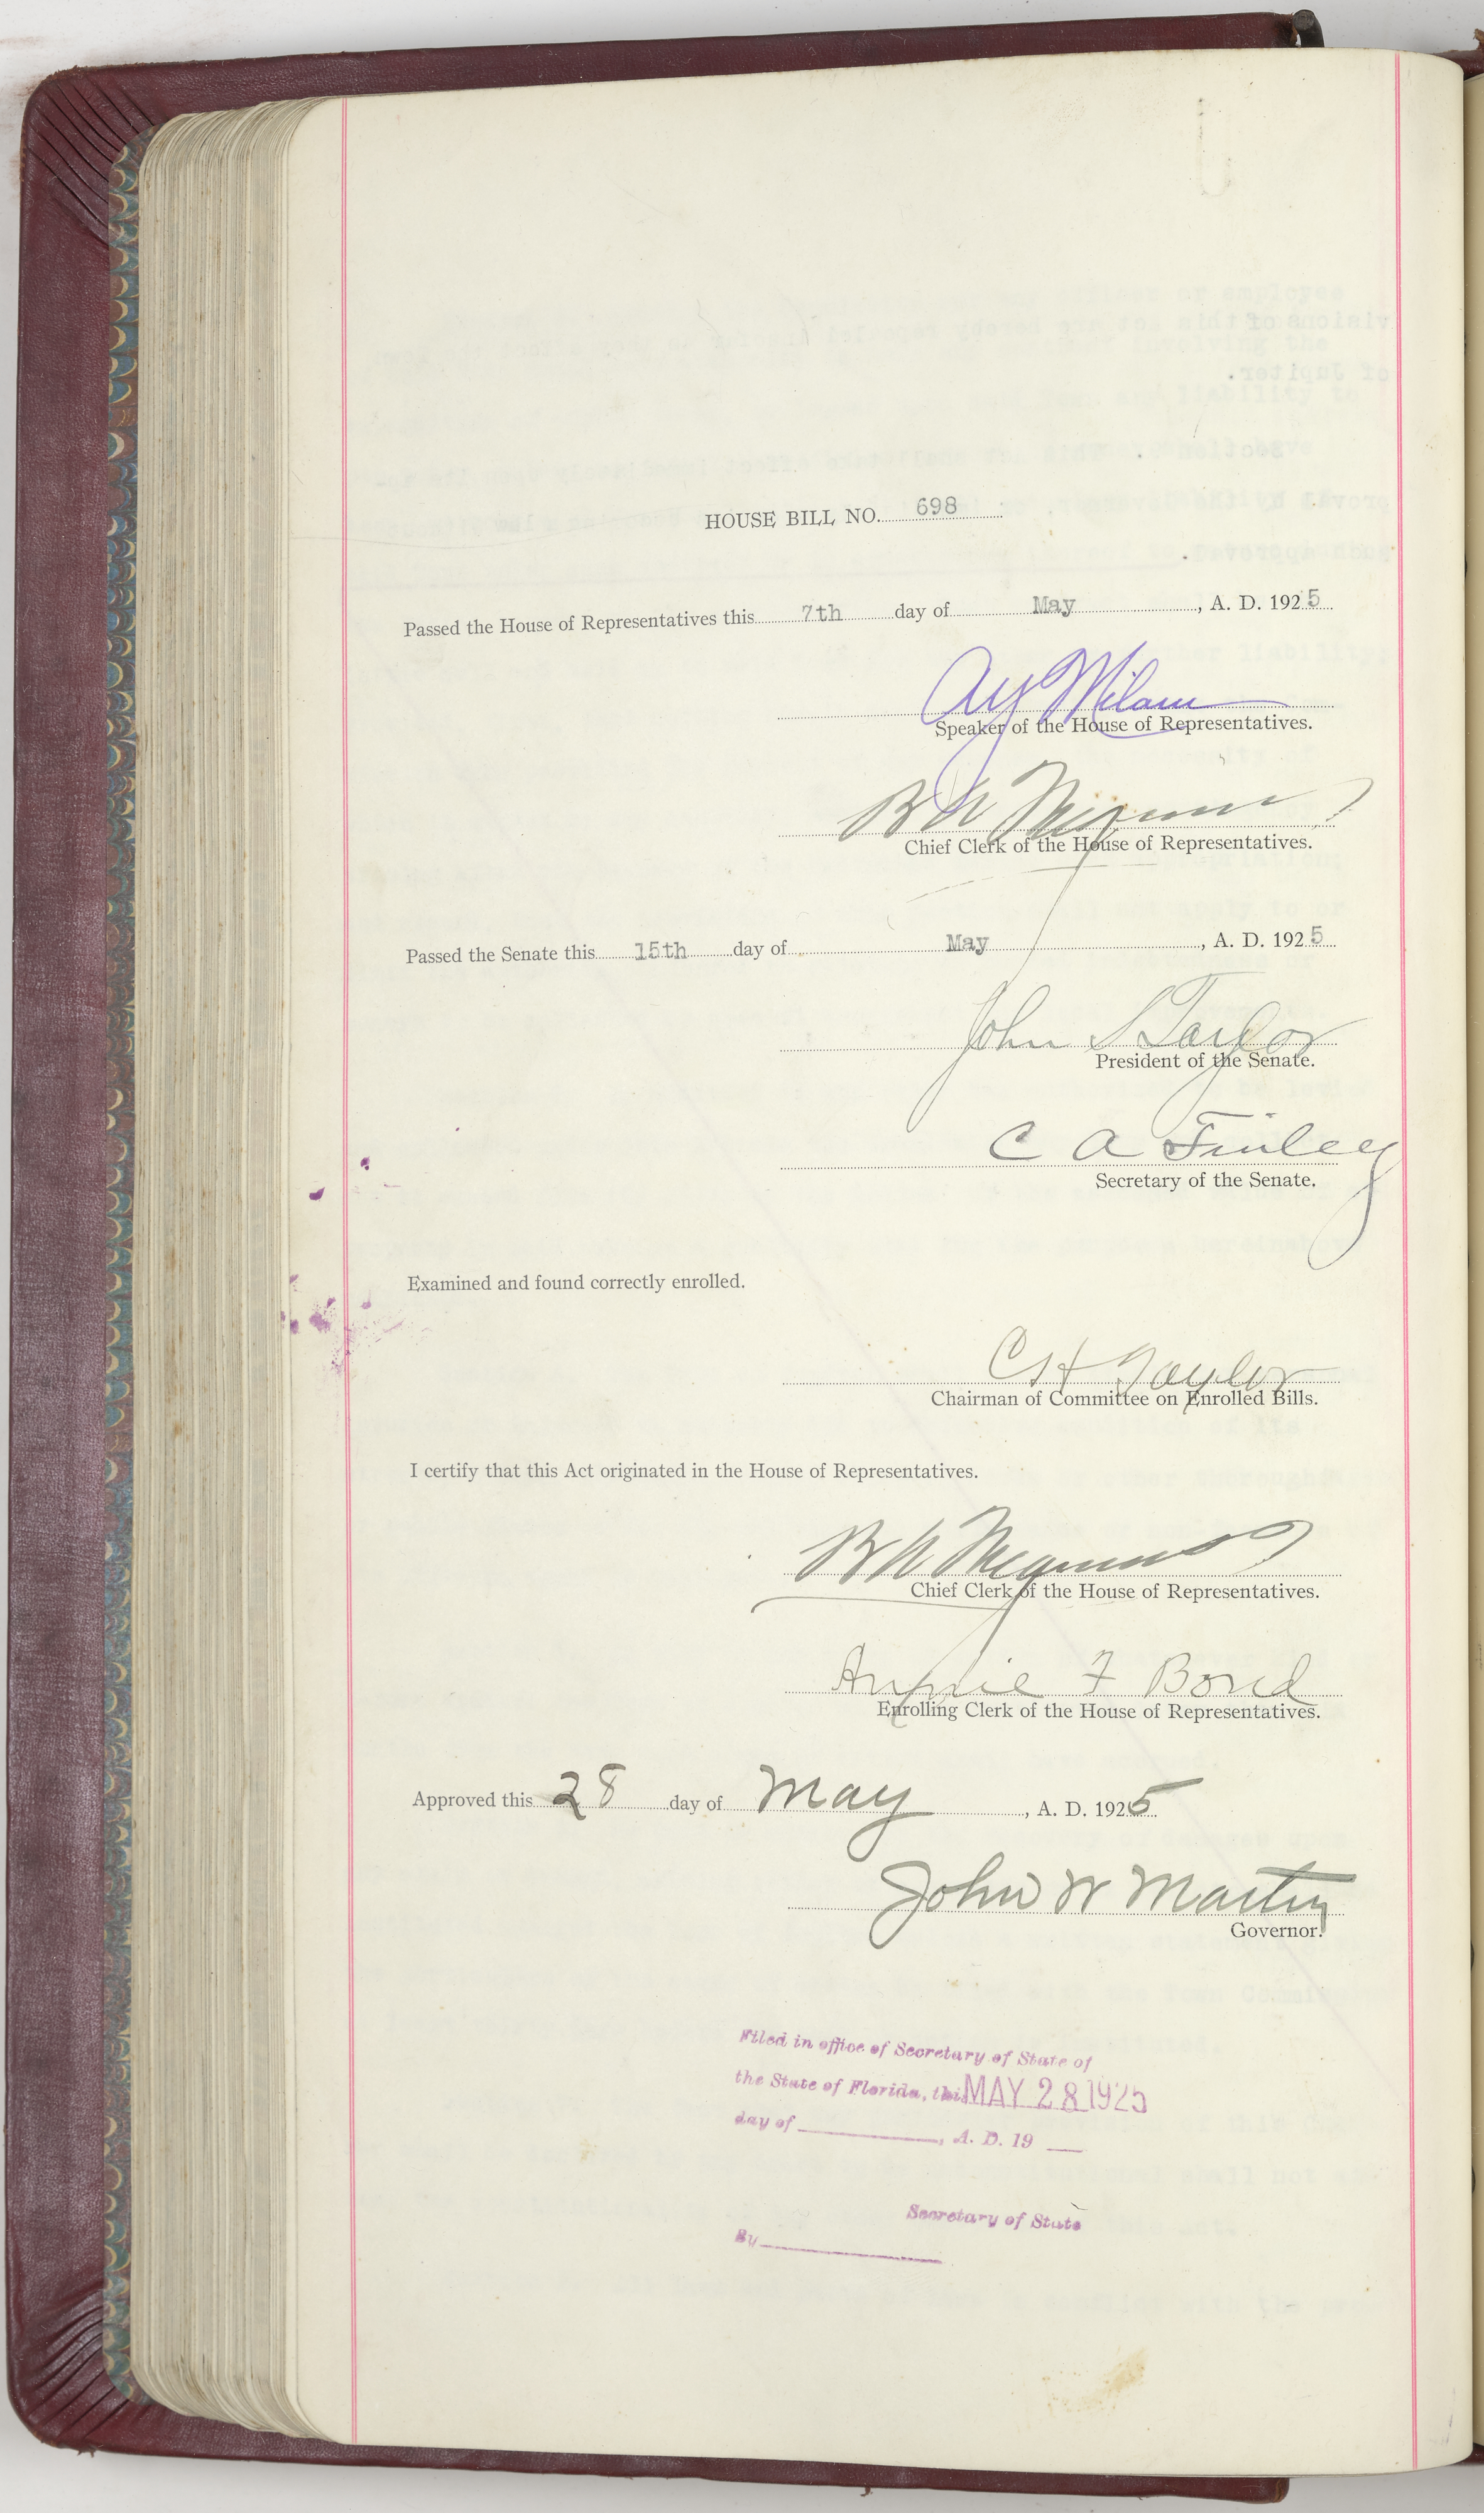 HOUSE BILL NO. 698
Passed the House of Representatives this 7th day of May, A. D. 1925
A Y Milam
Speaker of the House of Representatives.
B A
Chief Clerk of the House of Representatives.
Passed the Senate this 15th day of May, A. D. 1925
John S Taylor
President of the Senate.
C A Finley
Secretary of the Senate.
Examined and found correctly enrolled.
C H Taylor
Chairman of Committee on Enrolled Bills.
I certify that this Act originated in the House of Representatives.
B A
Chief Clerk of the House of Representatives.
Annie F Bond
Enrolling Clerk of the House of Representatives.
Approved this 28 day of May, A. D. 1925
John W Martin
Governor.
Filed in office of Secretary of State of
the State of Florida, this MAY 28 1925
day of , A. D. 19
Secretary of State
By